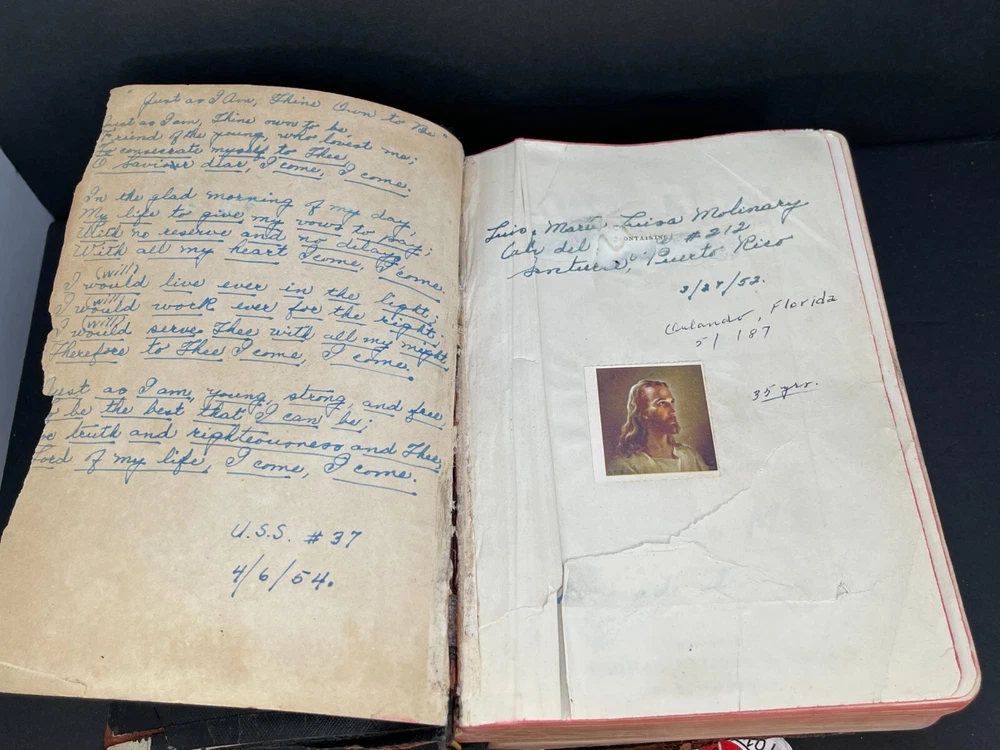 "Just as I Am, Thine Own to Be"
Just as I am, Thine own to be,
Friend of the young, who lovest me;
To consecrate myself to Thee,
O Saviour dear, I come, I come.
In the glad morning of my day,
My life to give, my vows to pay;
With no reserve and no delay,
With all my heart I come, I come.
(will)
I would live ever in the light;
(will)
I would work ever for the right;
(will)
I would serve Thee with all my might,
Therefore to Thee I come, I come.
Just as I am, young, strong, and free,
be the best that I can be;
truth and righteousness and Thee,
Lord of my life, I come, I come.
U.S.S. #37
4/6/54.
Luis, Maria Luisa Molinary
Calle del #212
CONTAINING
Santurce, Puerto Rico
/52.
Orlando, Florida
5/187
35 yrs.